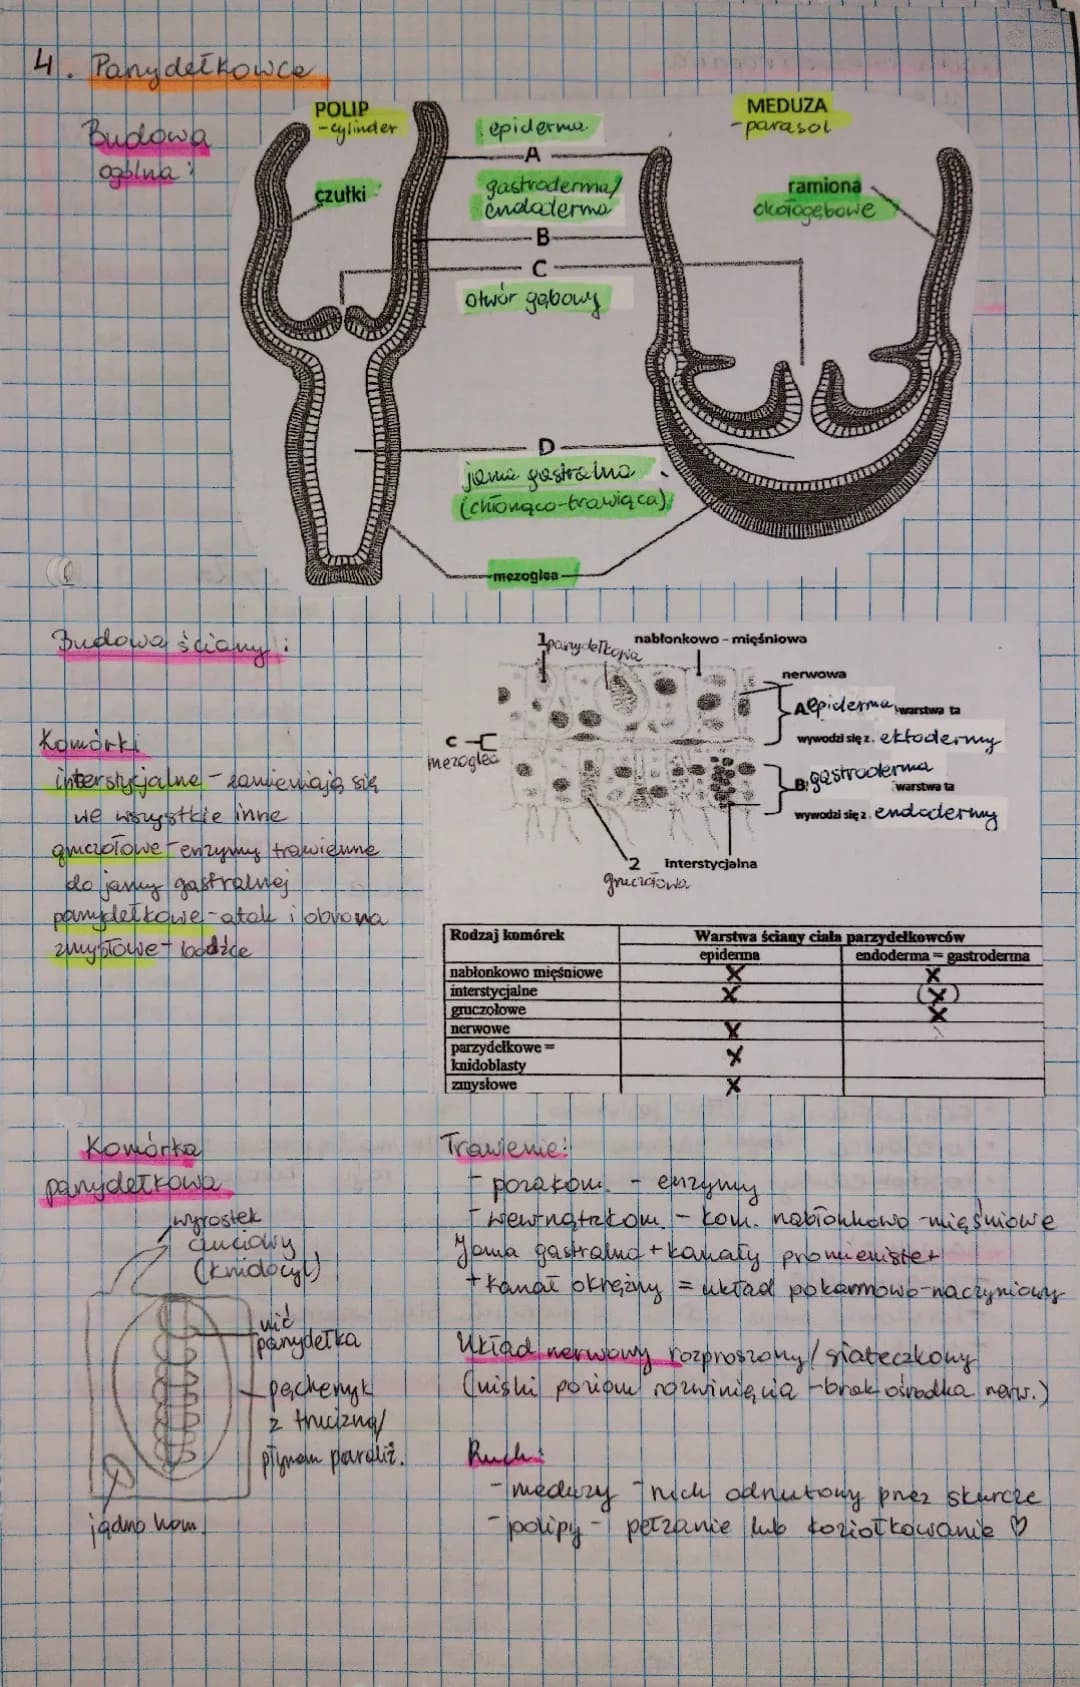 4. Parzydełkowce
Budowa
ogólna:
POLIP
-cylinder
czułki
epiderma
A
gastroderma/
endoderma
B
C
otwór gębowy
MEDUZA
-parasol
ramiona
okołogębowe
D
jama gastralna
(chłonąco-trawiąca)
mezoglea
Budowa ściany:
Komórki
interstycjalne - zamieniają się
we wszystkie inne
gruczołowe - enzymy trawienne
do jamy gastralnej
parzydełkowe - atak i obrona
zmysłowe - bodźce
1 parzydełkowa
nabłonkowo - mięśniowa
nerwowa
A. epiderma, warstwa ta
wywodzi się z ektodermy
C
mezoglea
B. gastroderma
warstwa ta
wywodzi się z endodermy
2
gruczołowa
interstycjalna
Rodzaj komórek Warstwa ściany ciała parzydełkowców
epiderma endoderma = gastroderma
nabłonkowo mięśniowe X X
interstycjalne X (X)
gruczołowe X
nerwowe X
parzydełkowe = X
knidoblasty
zmysłowe X
Komórka
parzydełkowa
wyrostek
czuciowy
(knidocyl)
nić
parzydełka
pęcherzyk
z trucizną/
płynem paraliż.
jądro kom.
Trawienie:
- pozakom. - enzymy
- wewnątrzkom. - kom. nabłonkowo-mięśniowe
Jama gastralna + kanały promieniste +
+ kanał okrężny = układ pokarmowo-naczyniowy
Układ nerwowy rozproszony / siateczkowy
(niski poziom rozwinięcia - brak ośrodka nerw.)
Ruch:
- meduzy - ruch odrzutowy przez skurcze
- polipy - pełzanie lub koziołkowanie ♡